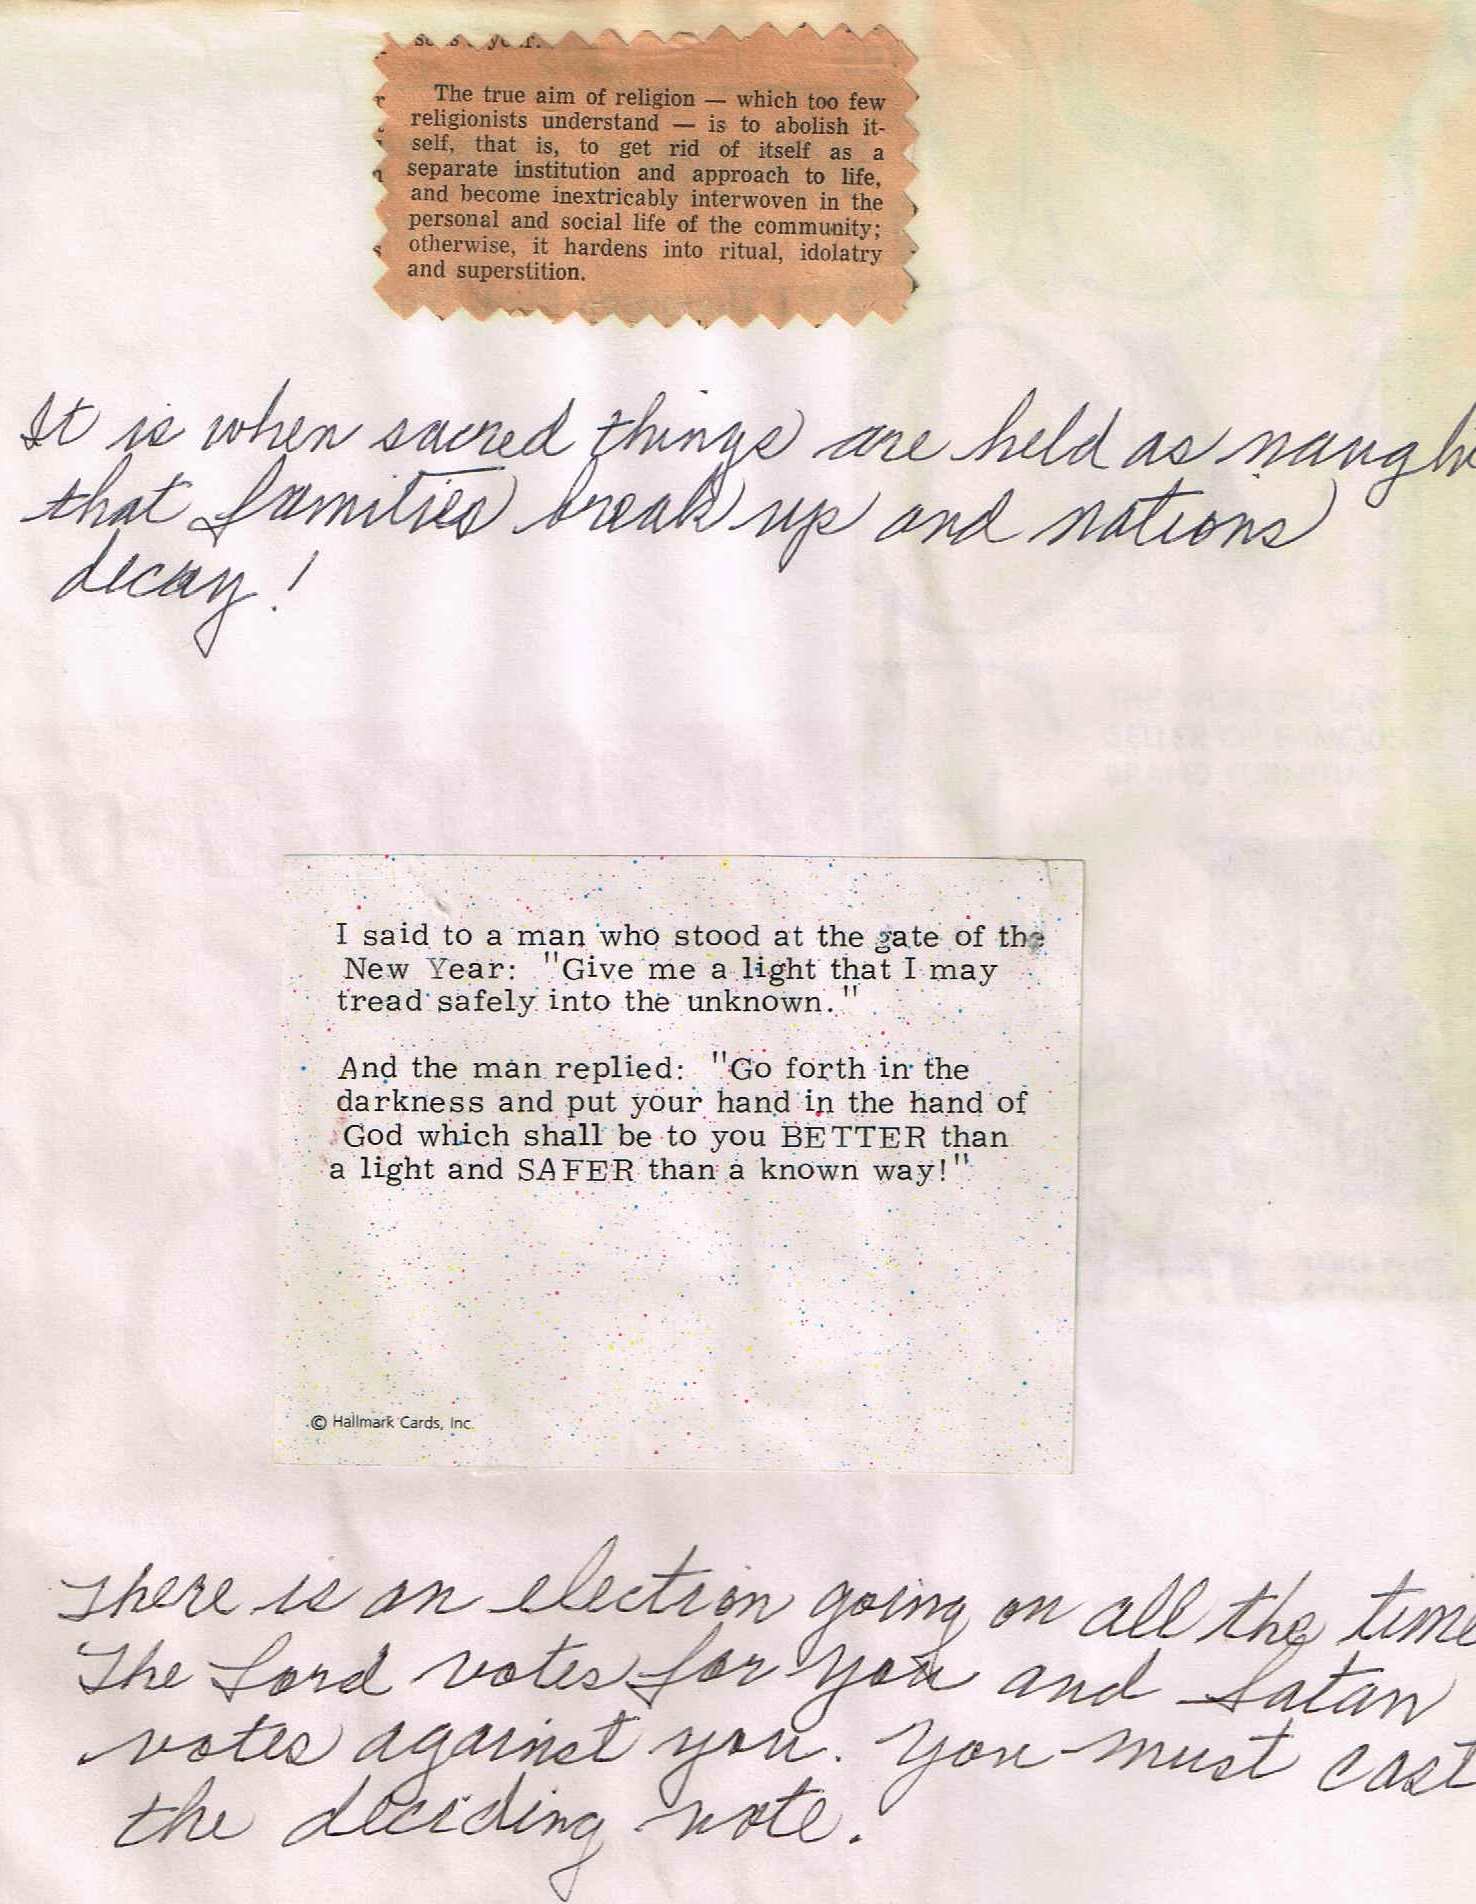 The true aim of religion — which too few
religionists understand — is to abolish it-
self, that is, to get rid of itself as a
separate institution and approach to life,
and become inextricably interwoven in the
personal and social life of the community;
otherwise, it hardens into ritual, idolatry
and superstition.
It is when sacred things are held as naugh
that families break up and nations
decay!
I said to a man who stood at the gate of the
New Year: "Give me a light that I may
tread safely into the unknown."
And the man replied: "Go forth in the
darkness and put your hand in the hand of
God which shall be to you BETTER than
a light and SAFER than a known way!"
© Hallmark Cards, Inc.
There is an election going on all the time
The Lord votes for you and Satan
votes against you. You must cast
the deciding vote.